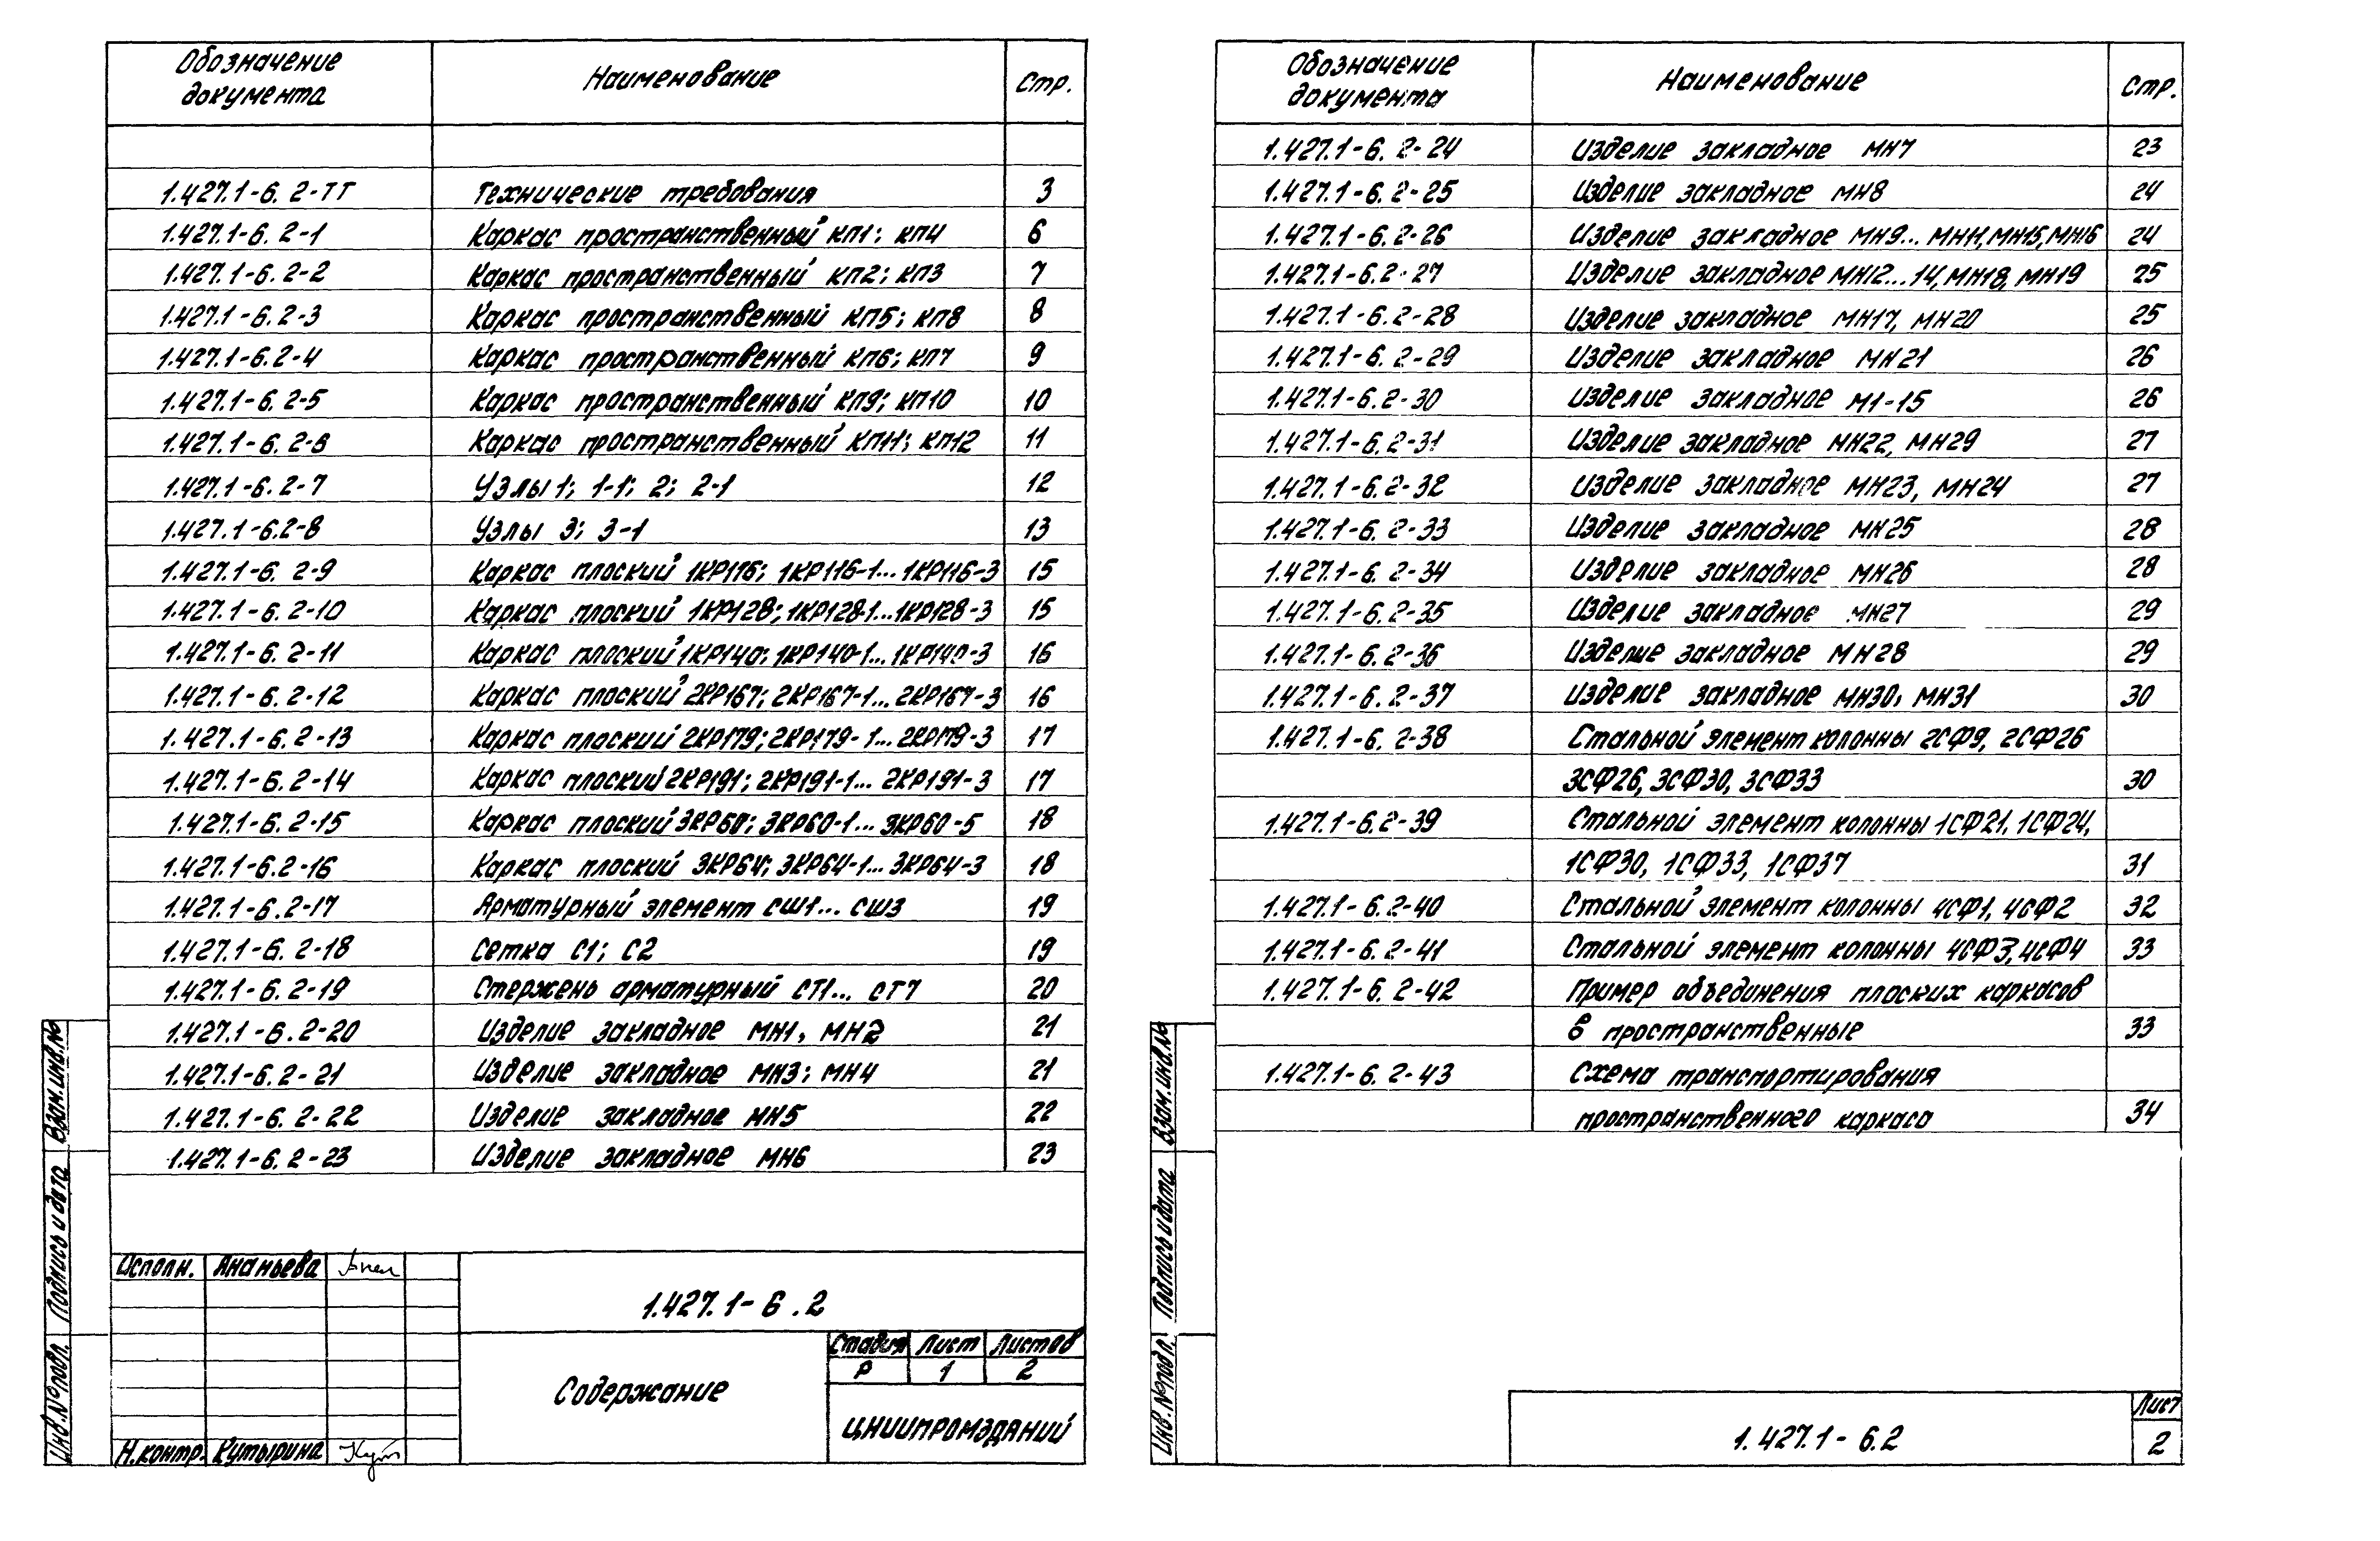 Обозначение документа Наименование Стр.
1.427.1-6.2-ТТ Технические требования 3
1.427.1-6.2-1 Каркас пространственный КП1; КП4 6
1.427.1-6.2-2 Каркас пространственный КП2; КП3 7
1.427.1-6.2-3 Каркас пространственный КП5; КП8 8
1.427.1-6.2-4 Каркас пространственный КП6; КП7 9
1.427.1-6.2-5 Каркас пространственный КП9; КП10 10
1.427.1-6.2-6 Каркас пространственный КП11; КП12 11
1.427.1-6.2-7 Узлы 1; 1-1; 2; 2-1 12
1.427.1-6.2-8 Узлы 3; 3-1 13
1.427.1-6.2-9 Каркас плоский 1КР116; 1КР116-1... 1КР116-3 15
1.427.1-6.2-10 Каркас плоский 1КР128; 1КР128-1... 1КР128-3 15
1.427.1-6.2-11 Каркас плоский 1КР140; 1КР140-1... 1КР140-3 16
1.427.1-6.2-12 Каркас плоский 2КР167; 2КР167-1... 2КР167-3 16
1.427.1-6.2-13 Каркас плоский 2КР179; 2КР179-1... 2КР179-3 17
1.427.1-6.2-14 Каркас плоский 2КР191; 2КР191-1... 2КР191-3 17
1.427.1-6.2-15 Каркас плоский 3КР60; 3КР60-1... 3КР60-5 18
1.427.1-6.2-16 Каркас плоский 3КР64; 3КР64-1... 3КР64-3 18
1.427.1-6.2-17 Арматурный элемент СШ1... СШ3 19
1.427.1-6.2-18 Сетка С1; С2 19
1.427.1-6.2-19 Стержень арматурный СТ1... СТ7 20
1.427.1-6.2-20 Изделие закладное МН1, МН2 21
1.427.1-6.2-21 Изделие закладное МН3; МН4 21
1.427.1-6.2-22 Изделие закладное МН5 22
1.427.1-6.2-23 Изделие закладное МН6 23
Взам.инв.№
Подпись и дата
Инв.№подл.
Исполн. Ананьева
Н.контр. Кутырина
1.427.1-6.2
Содержание
Стадия Лист Листов
Р 1 2
ЦНИИПРОМЗДАНИЙ
Обозначение документа Наименование Стр.
1.427.1-6.2-24 Изделие закладное МН7 23
1.427.1-6.2-25 Изделие закладное МН8 24
1.427.1-6.2-26 Изделие закладное МН9... МН11, МН15, МН16 24
1.427.1-6.2-27 Изделие закладное МН12... 14, МН18, МН19 25
1.427.1-6.2-28 Изделие закладное МН17, МН20 25
1.427.1-6.2-29 Изделие закладное МН21 26
1.427.1-6.2-30 Изделие закладное М1-15 26
1.427.1-6.2-31 Изделие закладное МН22, МН29 27
1.427.1-6.2-32 Изделие закладное МН23, МН24 27
1.427.1-6.2-33 Изделие закладное МН25 28
1.427.1-6.2-34 Изделие закладное МН26 28
1.427.1-6.2-35 Изделие закладное МН27 29
1.427.1-6.2-36 Изделие закладное МН28 29
1.427.1-6.2-37 Изделие закладное МН30, МН31 30
1.427.1-6.2-38 Стальной элемент колонны 2СФ9, 2СФ26
3СФ26, 3СФ30, 3СФ33 30
1.427.1-6.2-39 Стальной элемент колонны 1СФ21, 1СФ24,
1СФ30, 1СФ33, 1СФ37 31
1.427.1-6.2-40 Стальной элемент колонны 4СФ1, 4СФ2 32
1.427.1-6.2-41 Стальной элемент колонны 4СФ3, 4СФ4 33
1.427.1-6.2-42 Пример объединения плоских каркасов
в пространственные 33
1.427.1-6.2-43 Схема транспортирования
пространственного каркаса 34
Взам.инв.№
Подпись и дата
Инв.№подл.
1.427.1-6.2
Лист
2